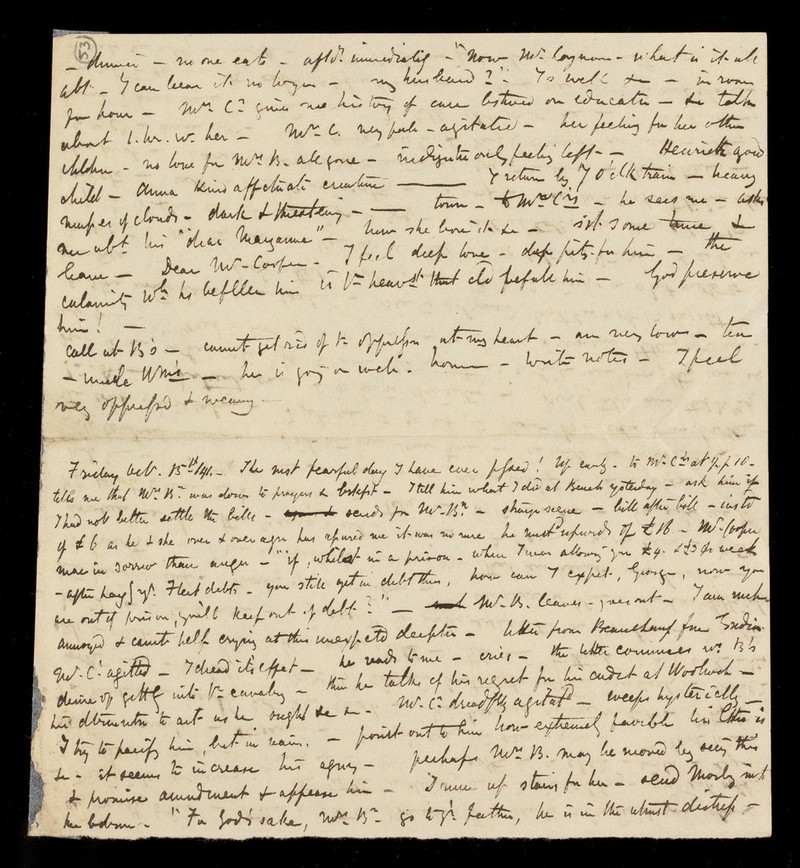 53
dinner - no one eats - aftds. immediately - "Now Mr. Cogman - what is it all
abt. - I can bear it no longer - my husband?" - Is well &c - in room
for hour - Mrs. Cr. gives me history of care bestowed on education - &c talks
about her - Mrs. C. very pale - agitated - her feeling for her other
children - no love for Mrs. B. all gone - only feeling left - Henrietta good
child - Anna kind affectionate creature - I return by 7 o'clk train - heavy
masses of clouds - dark & threatening - town - to Mr Cr's - he sees me - asks
me abt. his "dear Maryanne" - how she bore it &c - sit some time &
leave - Dear Mr. Cooper - I feel deep love - deep pity for him - the
calamity wh. has befallen him is the heavst. that cld befall him - God preserve
him! -
call at B's - cannot get rid of the oppression at my heart - am very low - tea
- uncle Wm's - her is going on well - home - write notes - I feel
very oppressed & weary -
Friday Octr. 15th/41. - The most fearful day I have ever passed! Up early - to Mr. Cr's at 1/2 p 10 -
tells me that Mrs. Br. was down to prayers & brkfst - I tell him what I did at Bench yesterday - ask him if
I had not better settle the bills - sends for Mr. Br. - strange scene - bill after bill - instd
of £6 as he & she over & over again has assured me it was no more he must upwards of £16 - Mr. Cooper
more in sorrow than anger - "if, whilst in a prison - when I was allowing you £4. & £3 per week
- after payg yr. Fleet debts - you still get in debt there, how can I expect, George, now you
are out of prison, you'll keep out of debt?" - Mr. B. leaves - goes out - I am much
annoyed & cannot help crying at this unexpected deception - letter from Beauchamp from
Mr. C. agitted - I dread its effect - he reads to me - cries - the letter commences wh. B's
desire of gettg into the cavalry - then he talks of his regret for his cadet at Woolwich -
his detrmintn to act as he ought &c &c - Mr. C. dreadflly agitatd - weeps hysterically -
I try to pacify him, but in vain. - point out to him how extremely favorble his lttr is
&c - it seems to increase his agny - perhaps Mrs. B. may be moved by seeg this
& promise amendment & appease him - I run up stairs for her - send Morly into
her bdroom - "For God's sake, Mrs. Br. go to yr. father, he is in the utmost distress -